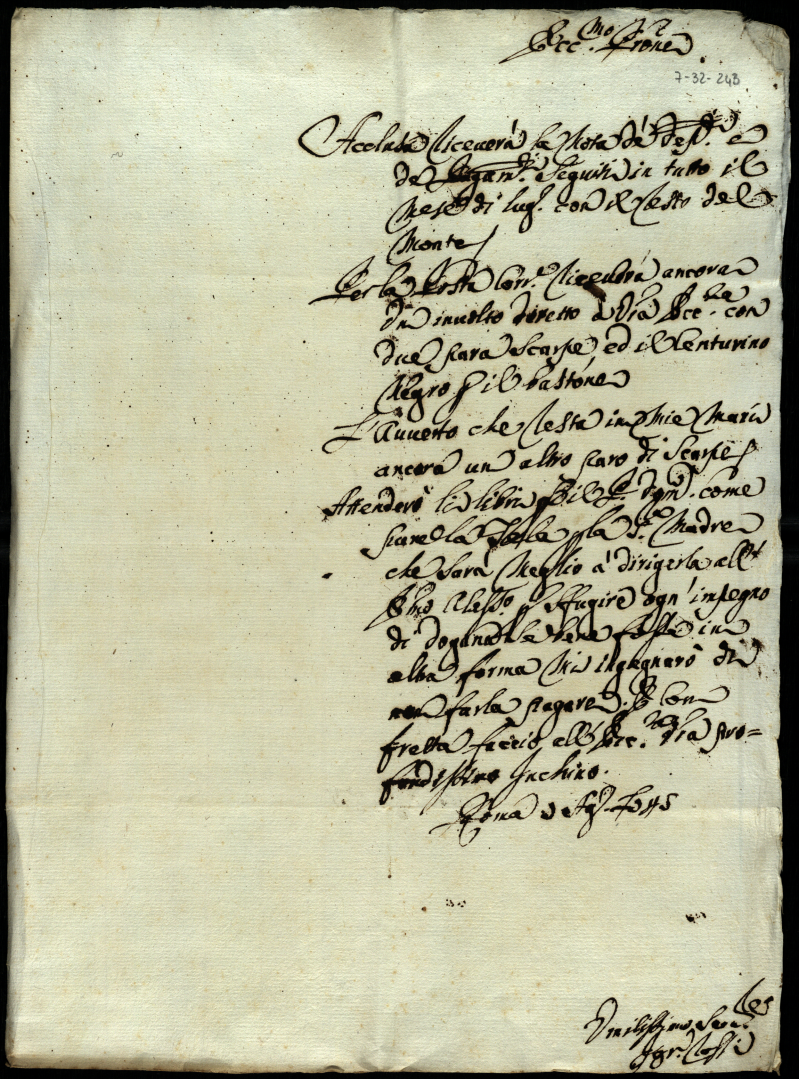 Ecc.mo Prone
7-32-243
Acclusa riceverà la Nota dè Dep.ti e
de Pagam.ti seguiti in tutto il
Mese di lug.o con il resto del
Monte
Per la Posta Corr.e riceverà ancora
un involto diretto à V'ra Ecc.za con
due para scarpe, ed il Centurino
Negro p il bastone
L'Avverto che resta in Mie Mani
ancora un altro paro di Scarpe
Attenderò li libri p il P. come
pare la p la S.ra Madre
che sarà Meglio à dirigerla all'
E'mo Aless.o p sfugire ogn'impegno
di dogana, se bene fosse in
altra forma Mi ingegnarò di
non farla pagare. E con
fretta faccio all'Ecc.za V'ra pro=
fondissimo Inchino.
Roma Ag.o 1745
Umilissimo Ser.re